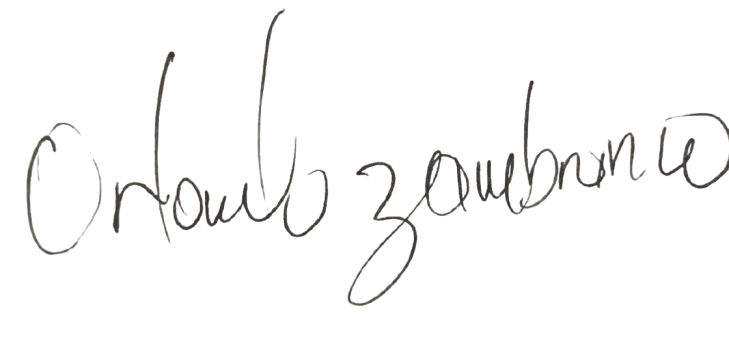 Orlando Zambrano